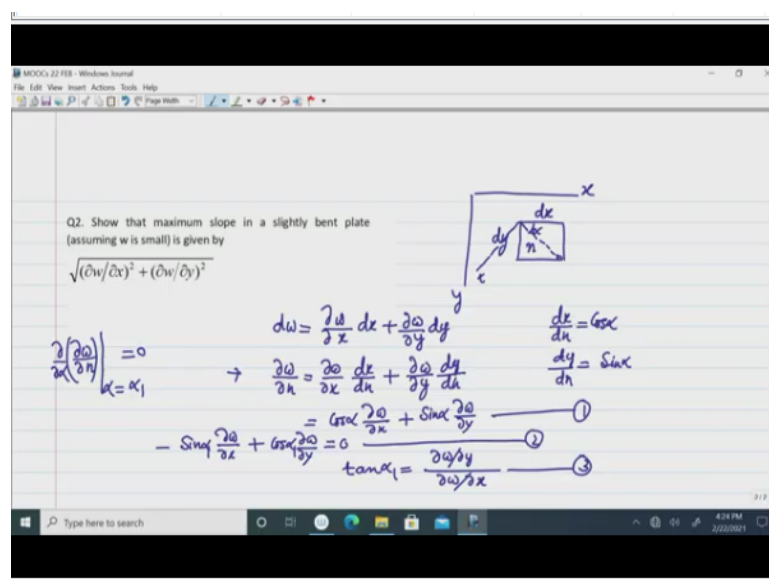 MOOCs 22 FEB - Windows Journal
File Edit View Insert Actions Tools Help
Page Width
Q2. Show that maximum slope in a slightly bent plate
(assuming w is small) is given by
√((∂w/∂x)² + (∂w/∂y)²)
x
dx
α
dy
n
t
y
dω = ∂ω/∂x dx + ∂ω/∂y dy
dx/dn = Cosα
∂/∂α (∂ω/∂n)|α=α₁ = 0
→ ∂ω/∂n = ∂ω/∂x dx/dn + ∂ω/∂y dy/dn
dy/dn = Sinα
= Cosα ∂ω/∂x + Sinα ∂ω/∂y — ①
- Sinα₁ ∂ω/∂x + Cosα₁ ∂ω/∂y = 0 — ②
tanα₁ = ∂ω/∂y / ∂ω/∂x — ③
2/2
Type here to search
4:24 PM
2/22/2021